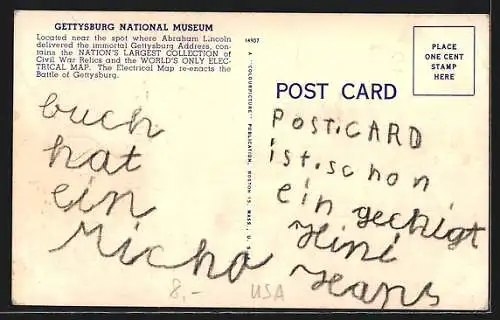 GETTYSBURG NATIONAL MUSEUM
Located near the spot where Abraham Lincoln
delivered the immortal Gettysburg Address, con-
tains the NATION'S LARGEST COLLECTION of
Civil War Relics and the WORLD'S ONLY ELEC-
TRICAL MAP. The Electrical Map re-enacts the
Battle of Gettysburg.
buch
hat
ein
Micha
8,- USA
14907
A "COLOURPICTURE" PUBLICATION, BOSTON 15, MASS., U.S.
POST CARD
PLACE
ONE CENT
STAMP
HERE
POST.CARD
ist.schon
ein gechigt
Hini
Hans